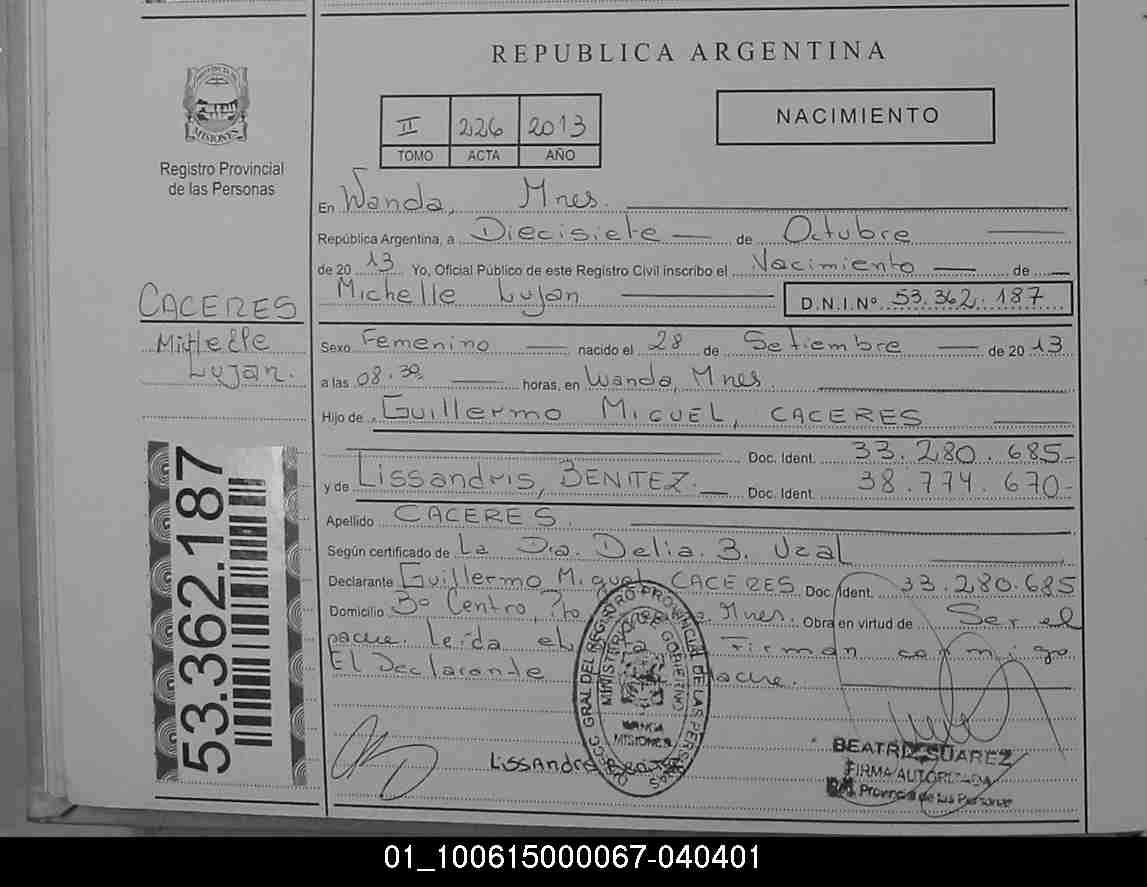 REPUBLICA ARGENTINA
PROVINCIA DE
MISIONES
Registro Provincial
de las Personas
II 226 2013
TOMO ACTA AÑO
NACIMIENTO
En Wanda, Mnes.
República Argentina, a Diecisiete de Octubre
de 20 13 Yo, Oficial Público de este Registro Civil inscribo el Nacimiento de
Michelle Lujan D.N.I.Nº 53.362.187
CACERES
Michelle
Lujan.
Sexo Femenino nacido el 28 de Setiembre de 20 13
a las 08.30 horas, en Wanda, Mnes.
Hijo de Guillermo MIGUEL, CACERES
Doc. Ident. 33.280.685-
y de Lissandris, BENITEZ. Doc. Ident. 38.774.670-
Apellido CACERES.
Según certificado de La Dra. Delia. B. Uzal
Declarante Guillermo Miguel CACERES Doc. Ident. 33.280.685
Domicilio Bº Centro, Pto Mnes. Obra en virtud de Ser el
padre. Leída el Firman conmigo
El Declarante Madre.
53.362.187
GRAL DEL REGISTRO PROVINCIAL DE LAS PERSONAS
MINISTERIO DE GOBIERNO
WANDA
MISIONES
Lissandris Benitez
BEATRIZ SUAREZ
FIRMA AUTORIZADA
Provincial de las Personas
01_100615000067-040401